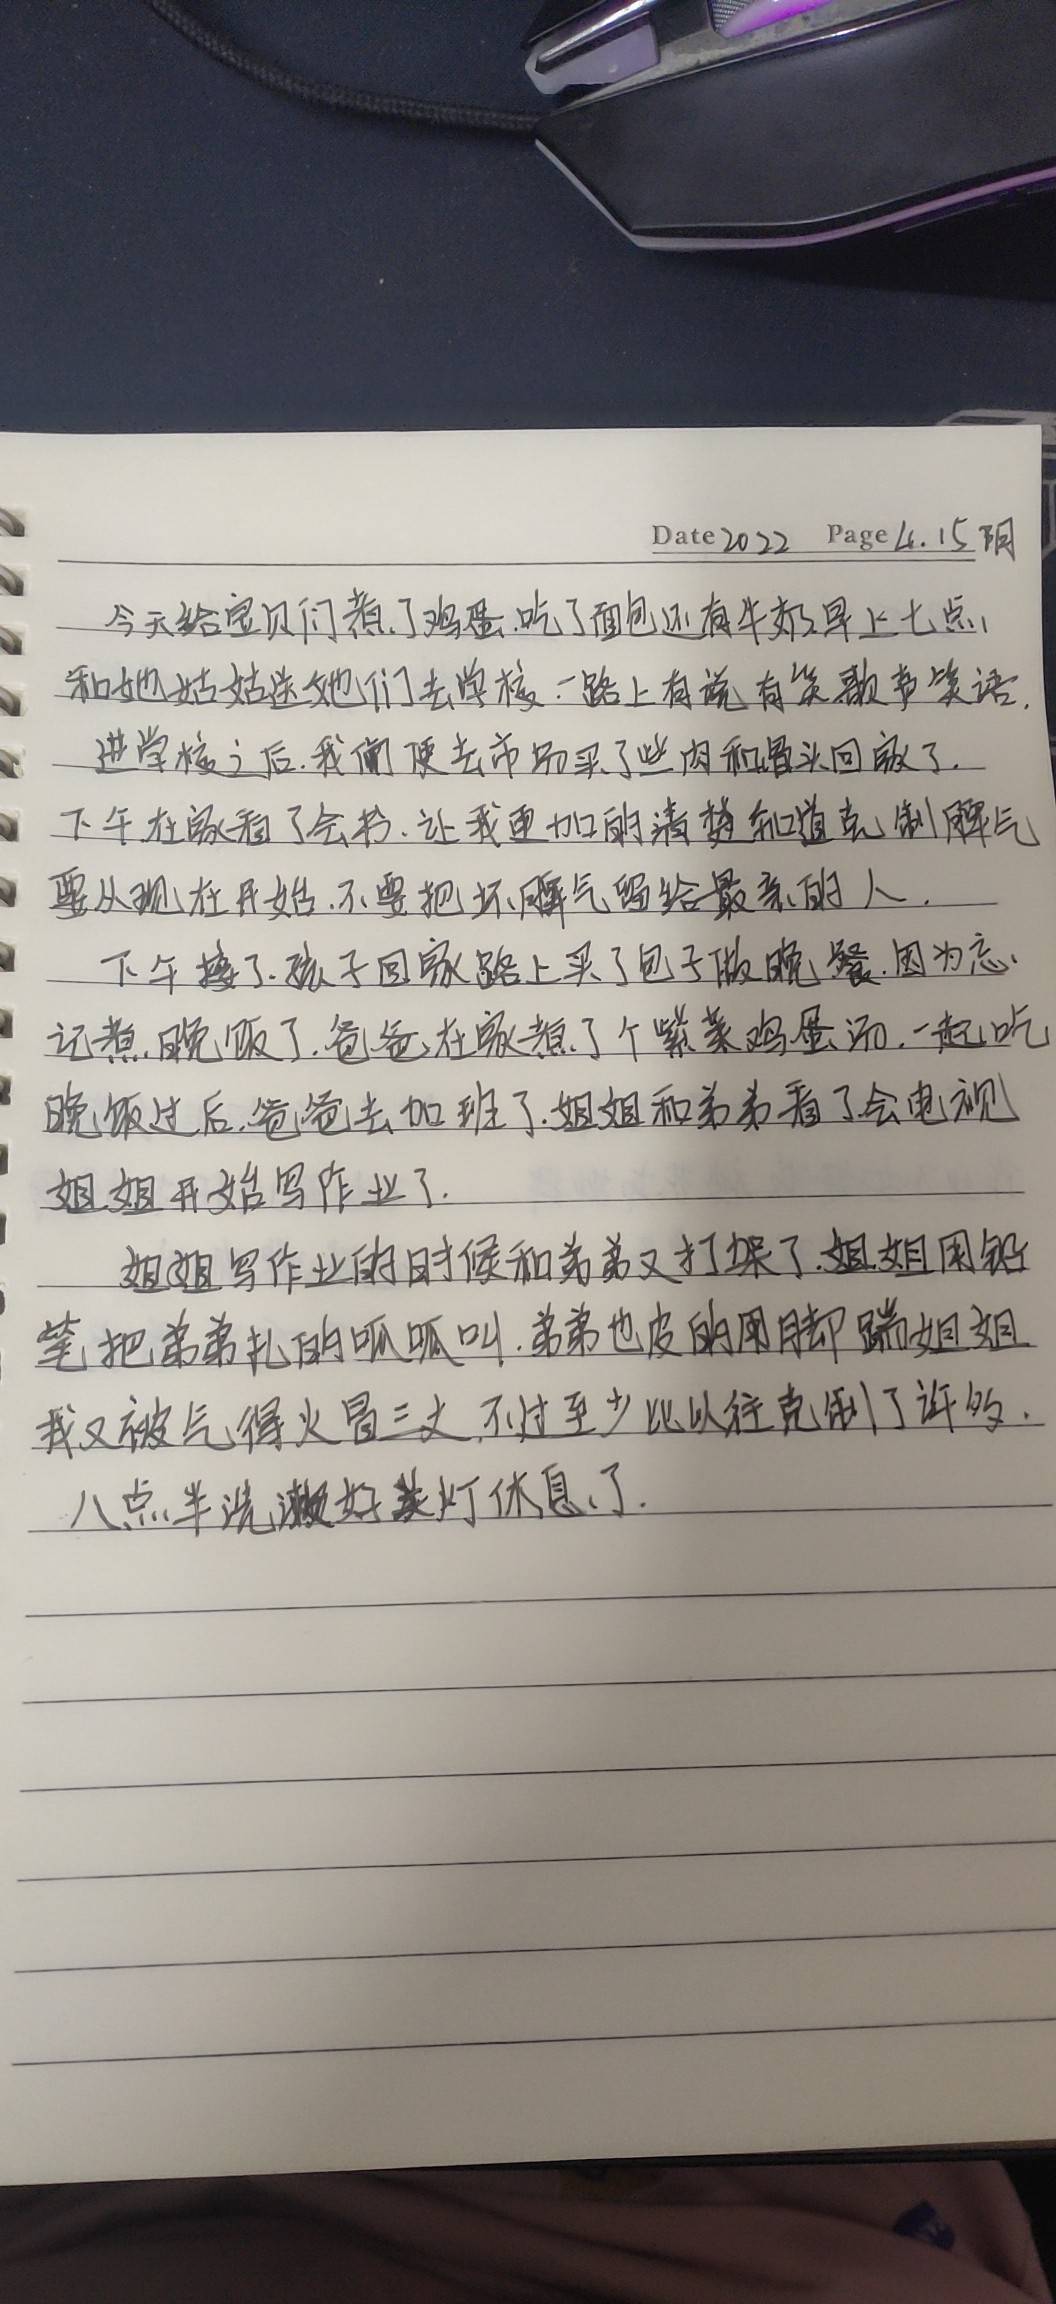 Date 2022 Page 4.15 阴
今天给宝贝们煮了鸡蛋.吃了面包还有牛奶.早上七点,
和她姑姑送她们去学校.一路上有说有笑歌声笑语.
进学校之后.我俩便去市场买了些肉和骨头回家了.
下午在家看了会书.让我更加的清楚知道克制脾气
要从现在开始.不要把坏脾气留给最亲的人.
下午接了孩子回家路上买了包子做晚餐.因为忘
记煮晚饭了.爸爸在家煮了个紫菜鸡蛋汤.一起吃
晚饭过后.爸爸去加班了.姐姐和弟弟看了会电视
姐姐开始写作业了.
姐姐写作业的时候和弟弟又打架了.姐姐用铅
笔把弟弟扎的呱呱叫.弟弟也皮的用脚踹姐姐
我又被气得火冒三丈.不过至少比以往克制了许多.
八点半洗漱好关灯休息了.